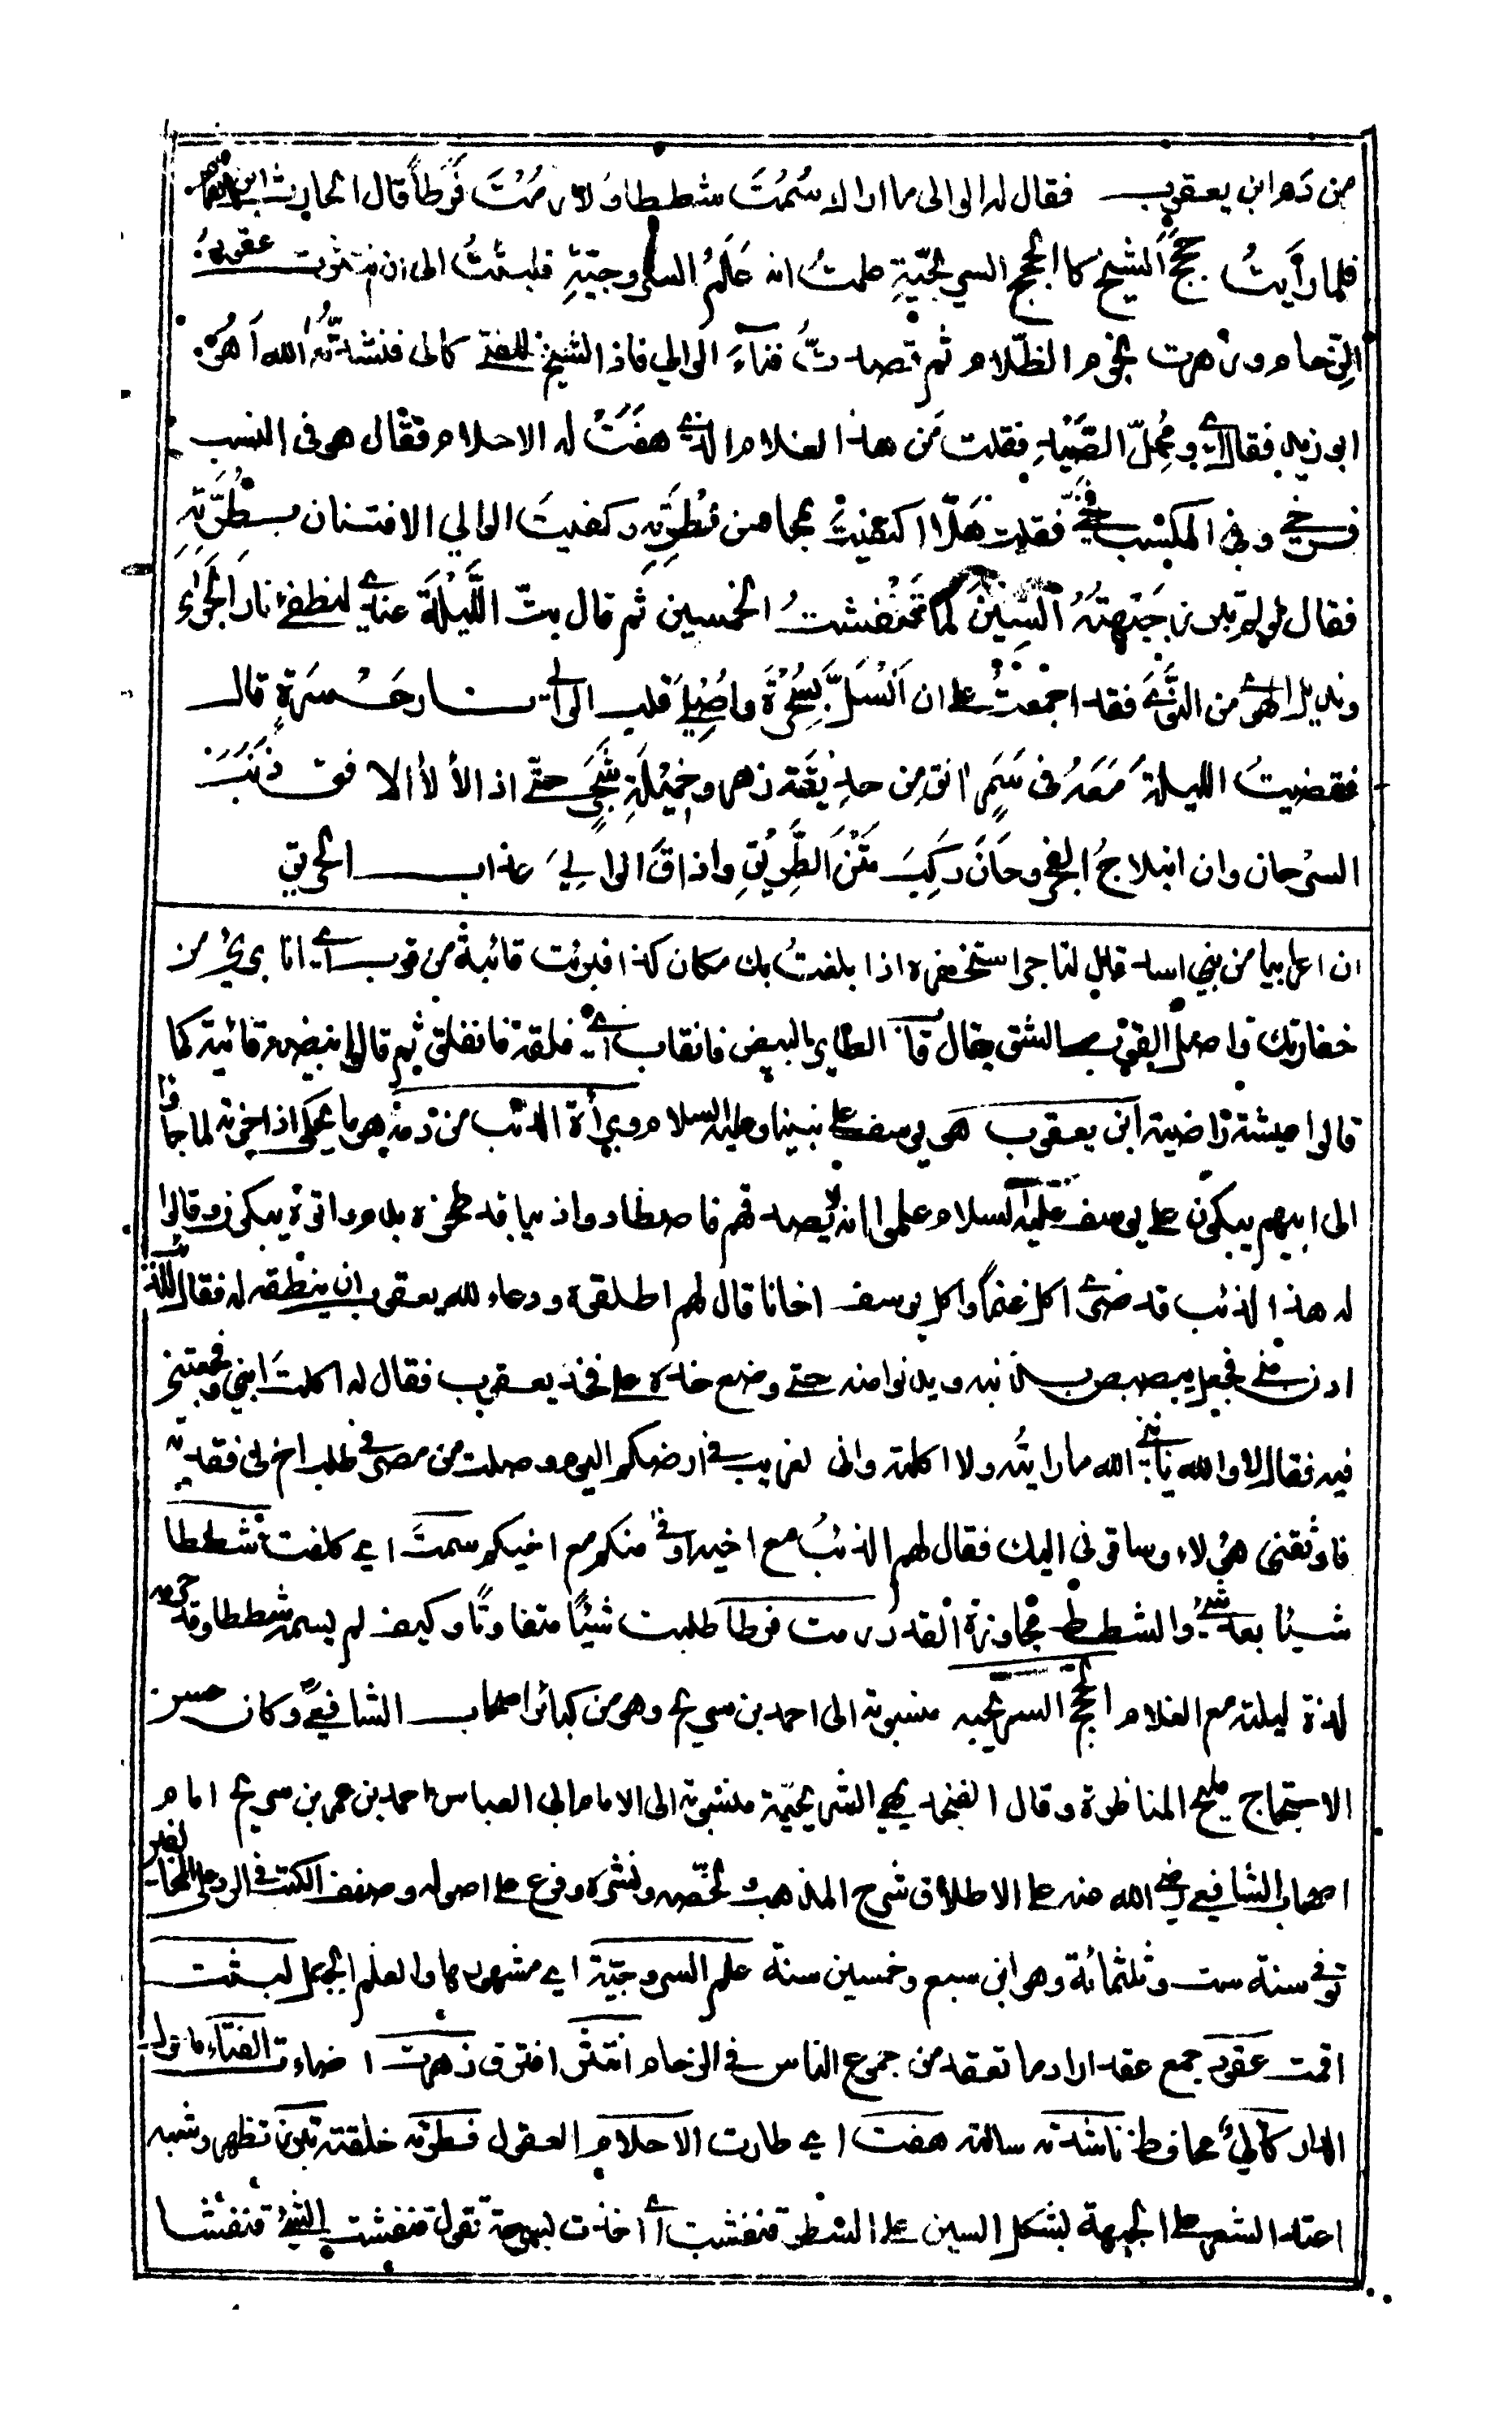 من دم ابن يعقوب فقال له الوالي ما اراك سُمْتَ شططا ولا رمْتَ فَرَطاً قال الحارث ابن همام
فلما رأيتُ حججَ الشيخ كالحجج السريجيّةِ علمتُ انه عَلَمُ السروجيّةِ فلبثتُ الى ان نثرت عقودُ
الزّحام وزهرت نجوم الظّلام ثم قصدتُ فناءَ الوالي فاذا الشيخ للفتى كالى فنشدتُه الله اَهُوَ
ابو زيد فقال اي ومُحِلّ الصَّيْدِ فقلت مَن هذا الغلام الذي هفَتْ له الاحلام فقال هو فى النسب
فرخي وفى المكسب فخّي فقلت هَلّا اكتفيتَ بمحاسن فِطْرَتِه وكفيتَ الوالي الافتتان بطُرَّتِه
فقال لو لم تبرز جَبْهتُهُ السِّيْنَ لَمَا قَنْفَشتُ الخمسين ثم قال بِتّ اللَّيْلَةَ عندي لنطفئ نارَ الجَوٰى
ونديل الهوى من النَّوٰى فقد اجْمَعْتُ على ان اَنْسَلَّ بِسُحْرَة واُصْلِيَ قلب الوالي نار حَسْرَةٍ قال
فقضيتُ الليلةَ مَعَهُ فى سَمَرٍ اٰنقَ من حديْقَة زهر وخَمِيْلَةِ شَجَرٍ حتّى اذا لألأ الافق ذَنَبُ
السرْحان وان انبلاجُ الفجر وحَانَ رَكِبَ مَتْنَ الطَّرِيْقِ واذاقَ الوالِيَ عذاب الحريق
ان اعرابيا من بني اسد قال لتاجر استخفره اذا بلغتُ بك مكان كذا فبرئت قائبةٌ من قوب اي انا برئ من
خفارتك واصل القوب الشق يقال قاب الطائر البيض فانقاب اي فلقه فانفلق ثم قالوا للبيضة قائبة كما
قالوا عيشة راضية ابن يعقوب هو يوسف على نبينا وعليه السلام وبرأة الذئب من دمه هو ما يحكى اذ اخوته لما جاؤا
الى ابيهم يبكون على يوسف عليه السلام علموا انه لا يصدقهم فاصطادوا ذئبا قد لطخوه بدم واتوه يبكون وقالوا
له هذا الذئب قد ضرى اكل غنماً واكل يوسف اخانا قال لهم اطلقوه ودعاء لله يعقوب ان ينطقه له فقال للذئب
ادن منى فجعل يبصبص بذنبه ويدنوا منه حتى وضع خده على فخذ يعقوب فقال له اكلتَ ابني وفجعتنى
فيه فقال لا والله يا نبي الله ما رايتُه ولا اكلته وانى لغريب فى ارضكم اليوم وصلت من مصر فى طلب اخ لى فقدته
فاوثقنى هؤلاء وساقونى اليك فقال لهم الذئبُ مع اخيه اوفى منكم مع اخيكم سمتَ اي كلفت شططا
شيئا بعد شئ والشطط مجاوزة القدر رمت فرطا طلبت شيئًا متفاوتًا وكيف لم يسمه شططا وقد حرمه
لذة ليلته مع الغلام الحجج السريجيه منسوبة الى احمد بن سريج وهو من كبائر اصحاب الشافعي وكان حسن
الاحتجاج مليح المناظرة وقال الفنجديهي السريجيّة منسوبة الى الامام ابى العباس احمد بن عمر بن سريج امام
اصحاب الشافعي رضي الله عنه على الاطلاق شرح المذهب ولخّصه ونشره وفرع على اصوله وصنف الكتب فى الرد على المخالفين
توفى سنة ست وثلثمائة وهو ابن سبع وخمسين سنة علم السروجيّة اي مشهورها والعلم الجبل لبثت
اقمت عقود جمع عقد اراد ما تعقد من جموع الناس فى الزحام انتثر افترق زهرت اضاءت الفناء ما حول
الدار كالئ محافظ ناشدته سالته هفت اي طارت الاحلام العقول فطرته خلقته تبرز تظهر وشبه
اعتد الشعر على الجبهة بشكل السين على السطر قنفشت اي اخذت بسرعة تقول قنفشت الشئ قنفشا